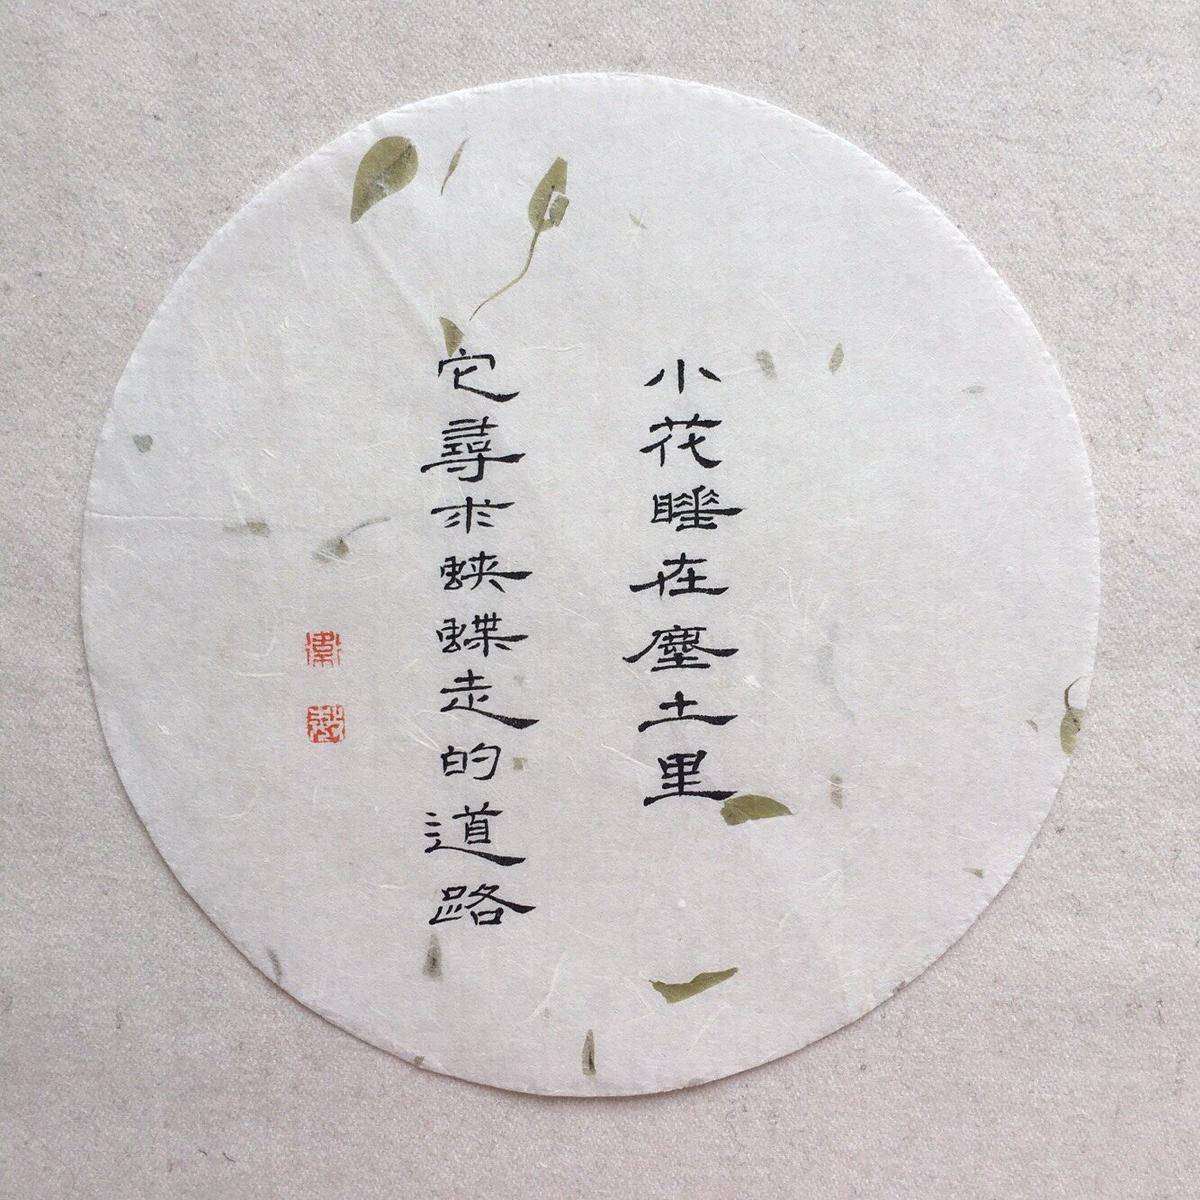 小花睡在塵土里
它尋求蛺蝶走的道路